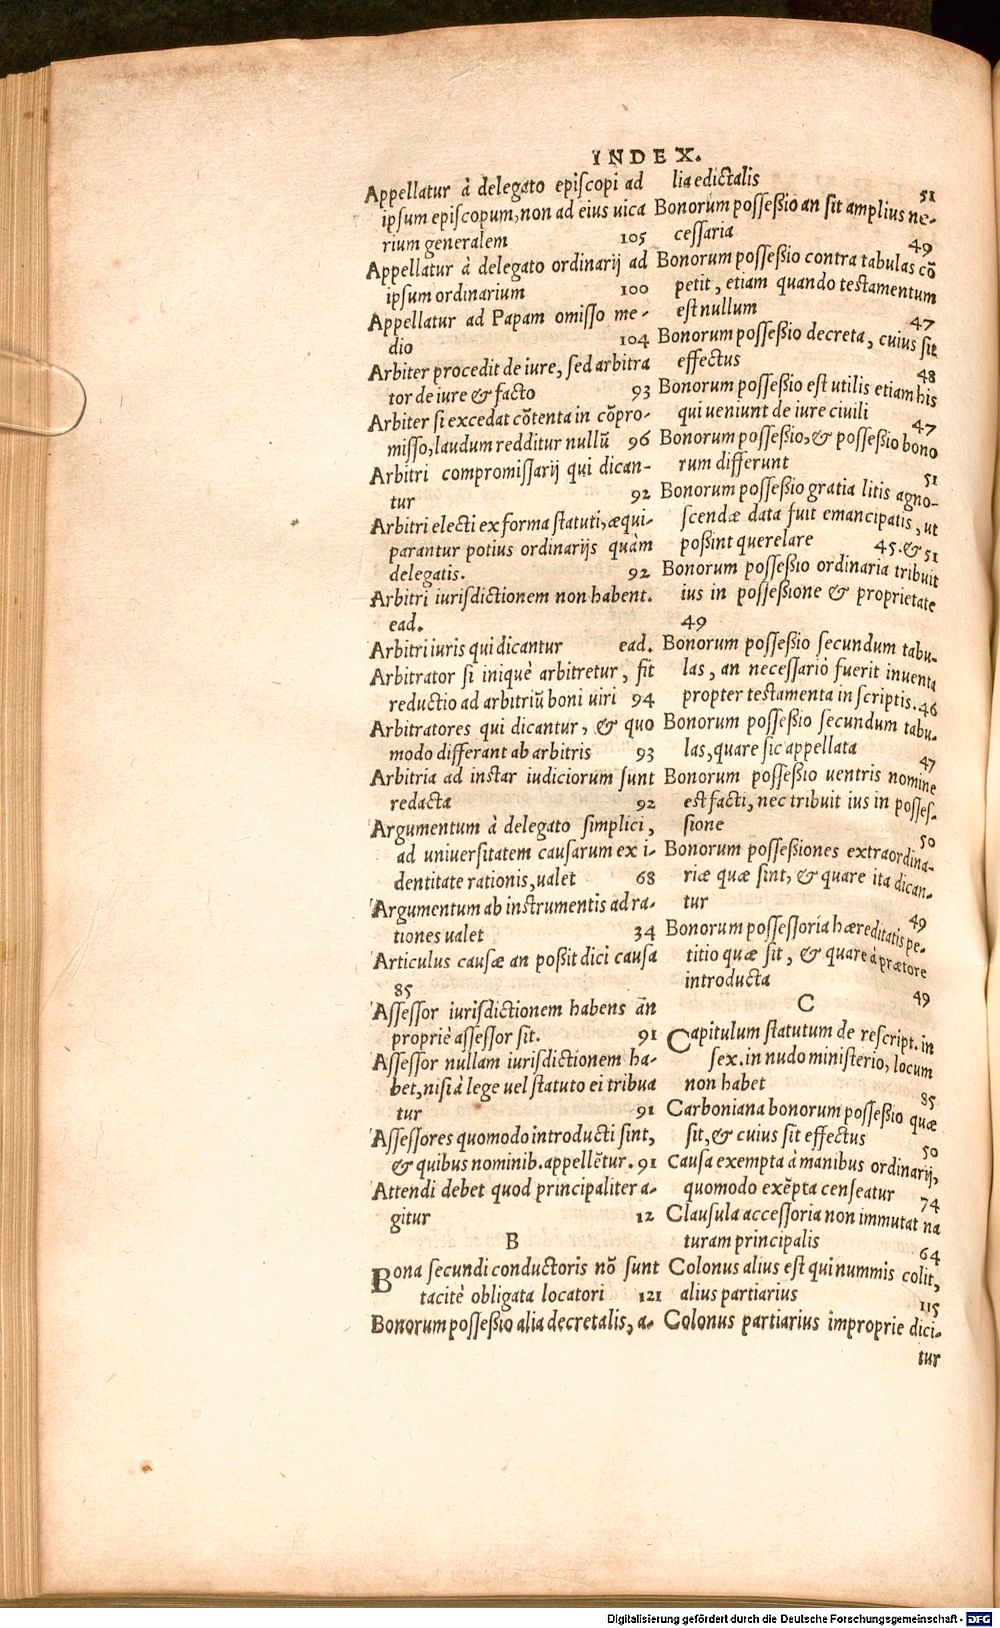 INDEX.
Appellatur à delegato episcopi ad
ipsum episcopum, non ad eius uica
rium generalem 105
Appellatur à delegato ordinarij ad
ipsum ordinarium 100
Appellatur ad Papam omisso me-
dio 104
Arbiter procedit de iure, sed arbitra
tor de iure & facto 93
Arbiter si excedat cõtenta in cõpro-
misso, laudum redditur nullũ 96
Arbitri compromissarij qui dican-
tur 92
Arbitri electi ex forma statuti, æqui-
parantur potius ordinarijs quàm
delegatis. 92
Arbitri iurisdictionem non habent.
ead.
Arbitri iuris qui dicantur ead.
Arbitrator si iniquè arbitretur, fit
reductio ad arbitriũ boni uiri 94
Arbitratores qui dicantur, & quo
modo differant ab arbitris 93
Arbitria ad instar iudiciorum sunt
redacta 92
Argumentum à delegato simplici,
ad uniuersitatem causarum ex i-
dentitate rationis, ualet 68
Argumentum ab instrumentis ad ra-
tiones ualet 34
Articulus causæ an poßit dici causa
85
Assessor iurisdictionem habens an
propriè assessor sit. 91
Assessor nullam iurisdictionem ha-
bet, nisi à lege uel statuto ei tribua
tur 91
Assessores quomodo introducti sint,
& quibus nominib. appellẽtur. 91
Attendi debet quod principaliter a-
gitur 12
B
Bona secundi conductoris nõ sunt
tacitè obligata locatori 121
Bonorum possessßio alia decretalis, a-
lia edictalis 51
Bonorum possesßio an sit amplius ne-
cessaria 49
Bonorum possesßio contra tabulas cõ
petit, etiam quando testamentum
est nullum 47
Bonorum possesßio decreta, cuius sit
effectus 48
Bonorum possesßio est utilis etiam his
qui ueniunt de iure ciuili 47
Bonorum possesßio, & possesßio bono
rum differunt 51
Bonorum possesßio gratia litis agno-
scendæ data fuit emancipatis, ut
poßint querelare 45. & 51
Bonorum possesßio ordinaria tribuit
ius in possesßione & proprietate
49
Bonorum possesßio secundum tabu-
las, an necessariò fuerit inuenta
propter testamenta in scriptis. 46
Bonorum possesßio secundum tabu-
las, quare sic appellata 47
Bonorum possesßio uentris nomine
est facti, nec tribuit ius in posses-
sione 50
Bonorum possesßiones extraordina-
riæ quæ sint, & quare ita dican-
tur 49
Bonorum possessoria hæreditatis pe-
titio quæ sit, & quare à prætore
introducta 49
C
Capitulum statutum de rescript. in
sex. in nudo ministerio, locum
non habet 85
Carboniana bonorum possesßio quæ
sit, & cuius sit effectus 50
Causa exempta à manibus ordinarij,
quomodo exẽpta censeatur 74
Clausula accessoria non immutat na
turam principalis 64
Colonus alius est qui nummis colit,
alius partiarius 115
Colonus partiarius improprie dici-
tur
Digitalisierung gefördert durch die Deutsche Forschungsgemeinschaft - DFG